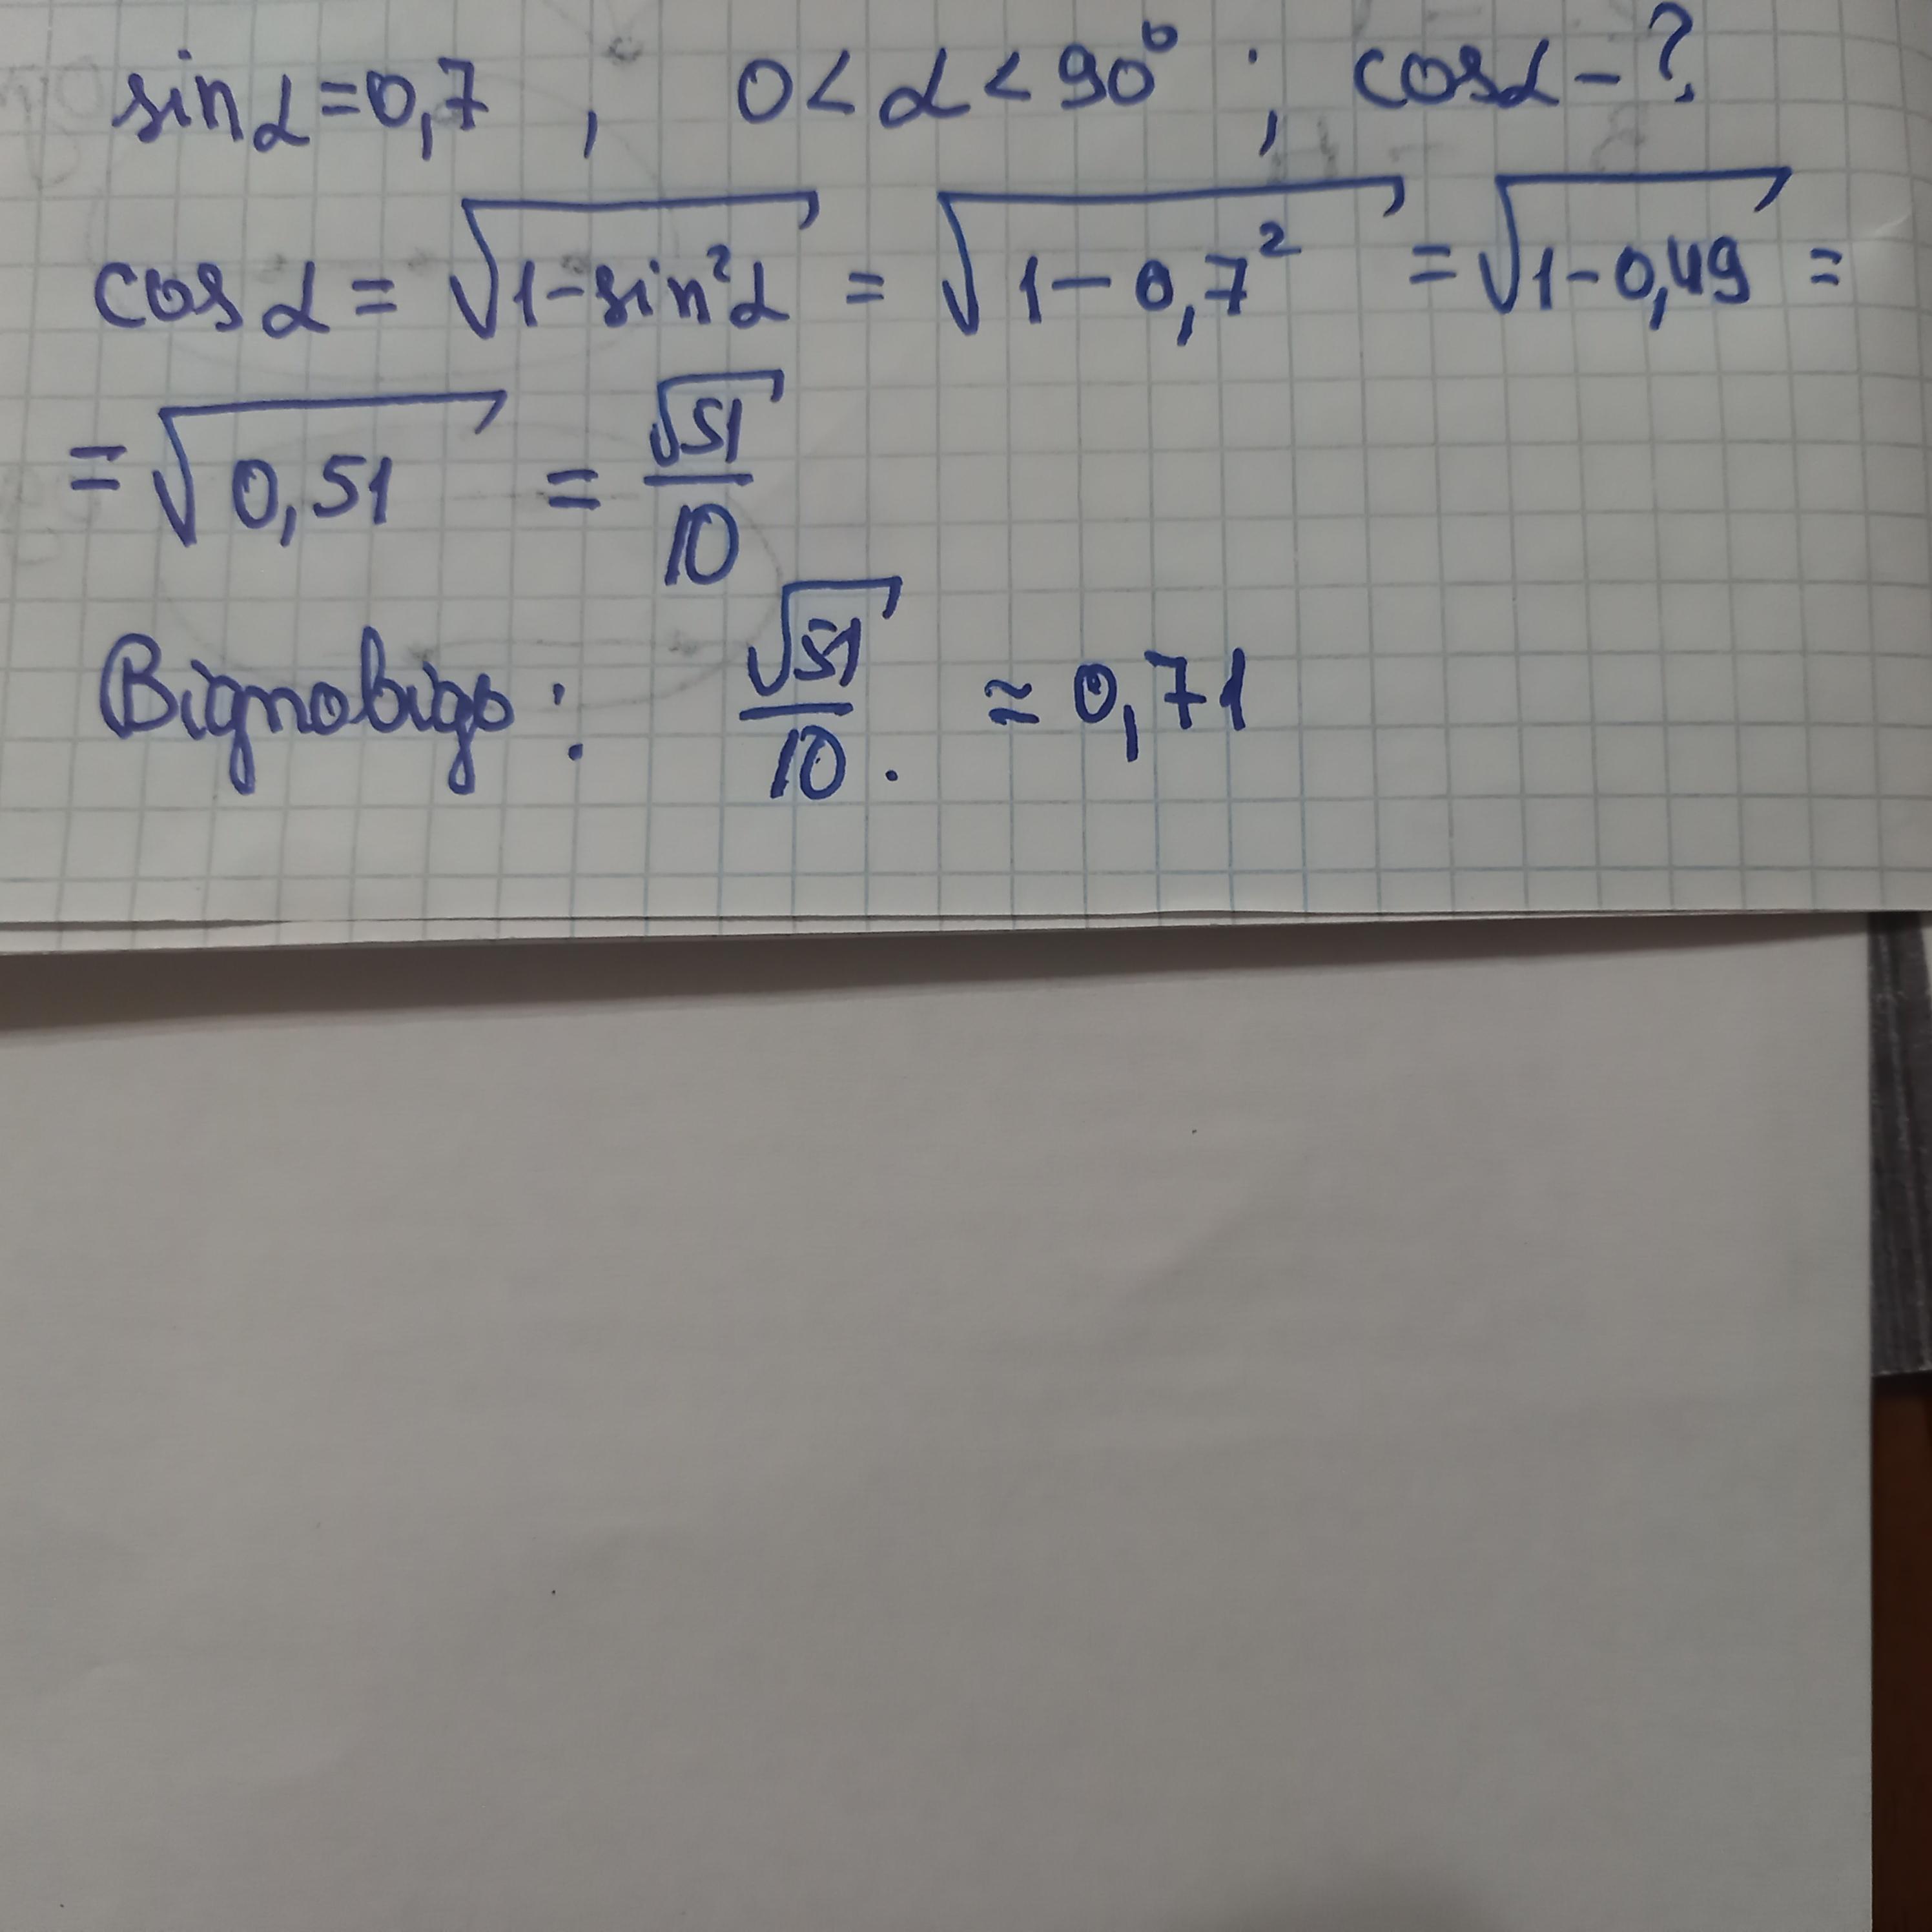 sin α = 0,7 , 0 < α < 90° ; cos α - ?
cos α = √(1 - sin²α) = √(1 - 0,7²) = √(1 - 0,49) =
= √(0,51) = √51/10
Відповідь: √51/10 . ≈ 0,71